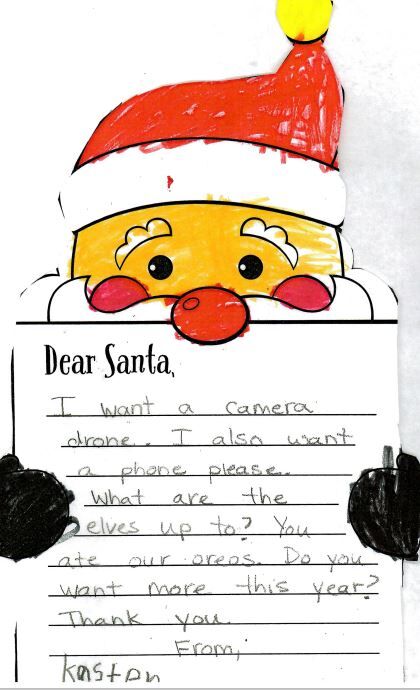 Dear Santa,
I want a camera
drone. I also want
a phone please.
What are the
elves up to? You
ate our oreos. Do you
want more this year?
Thank you.
From,